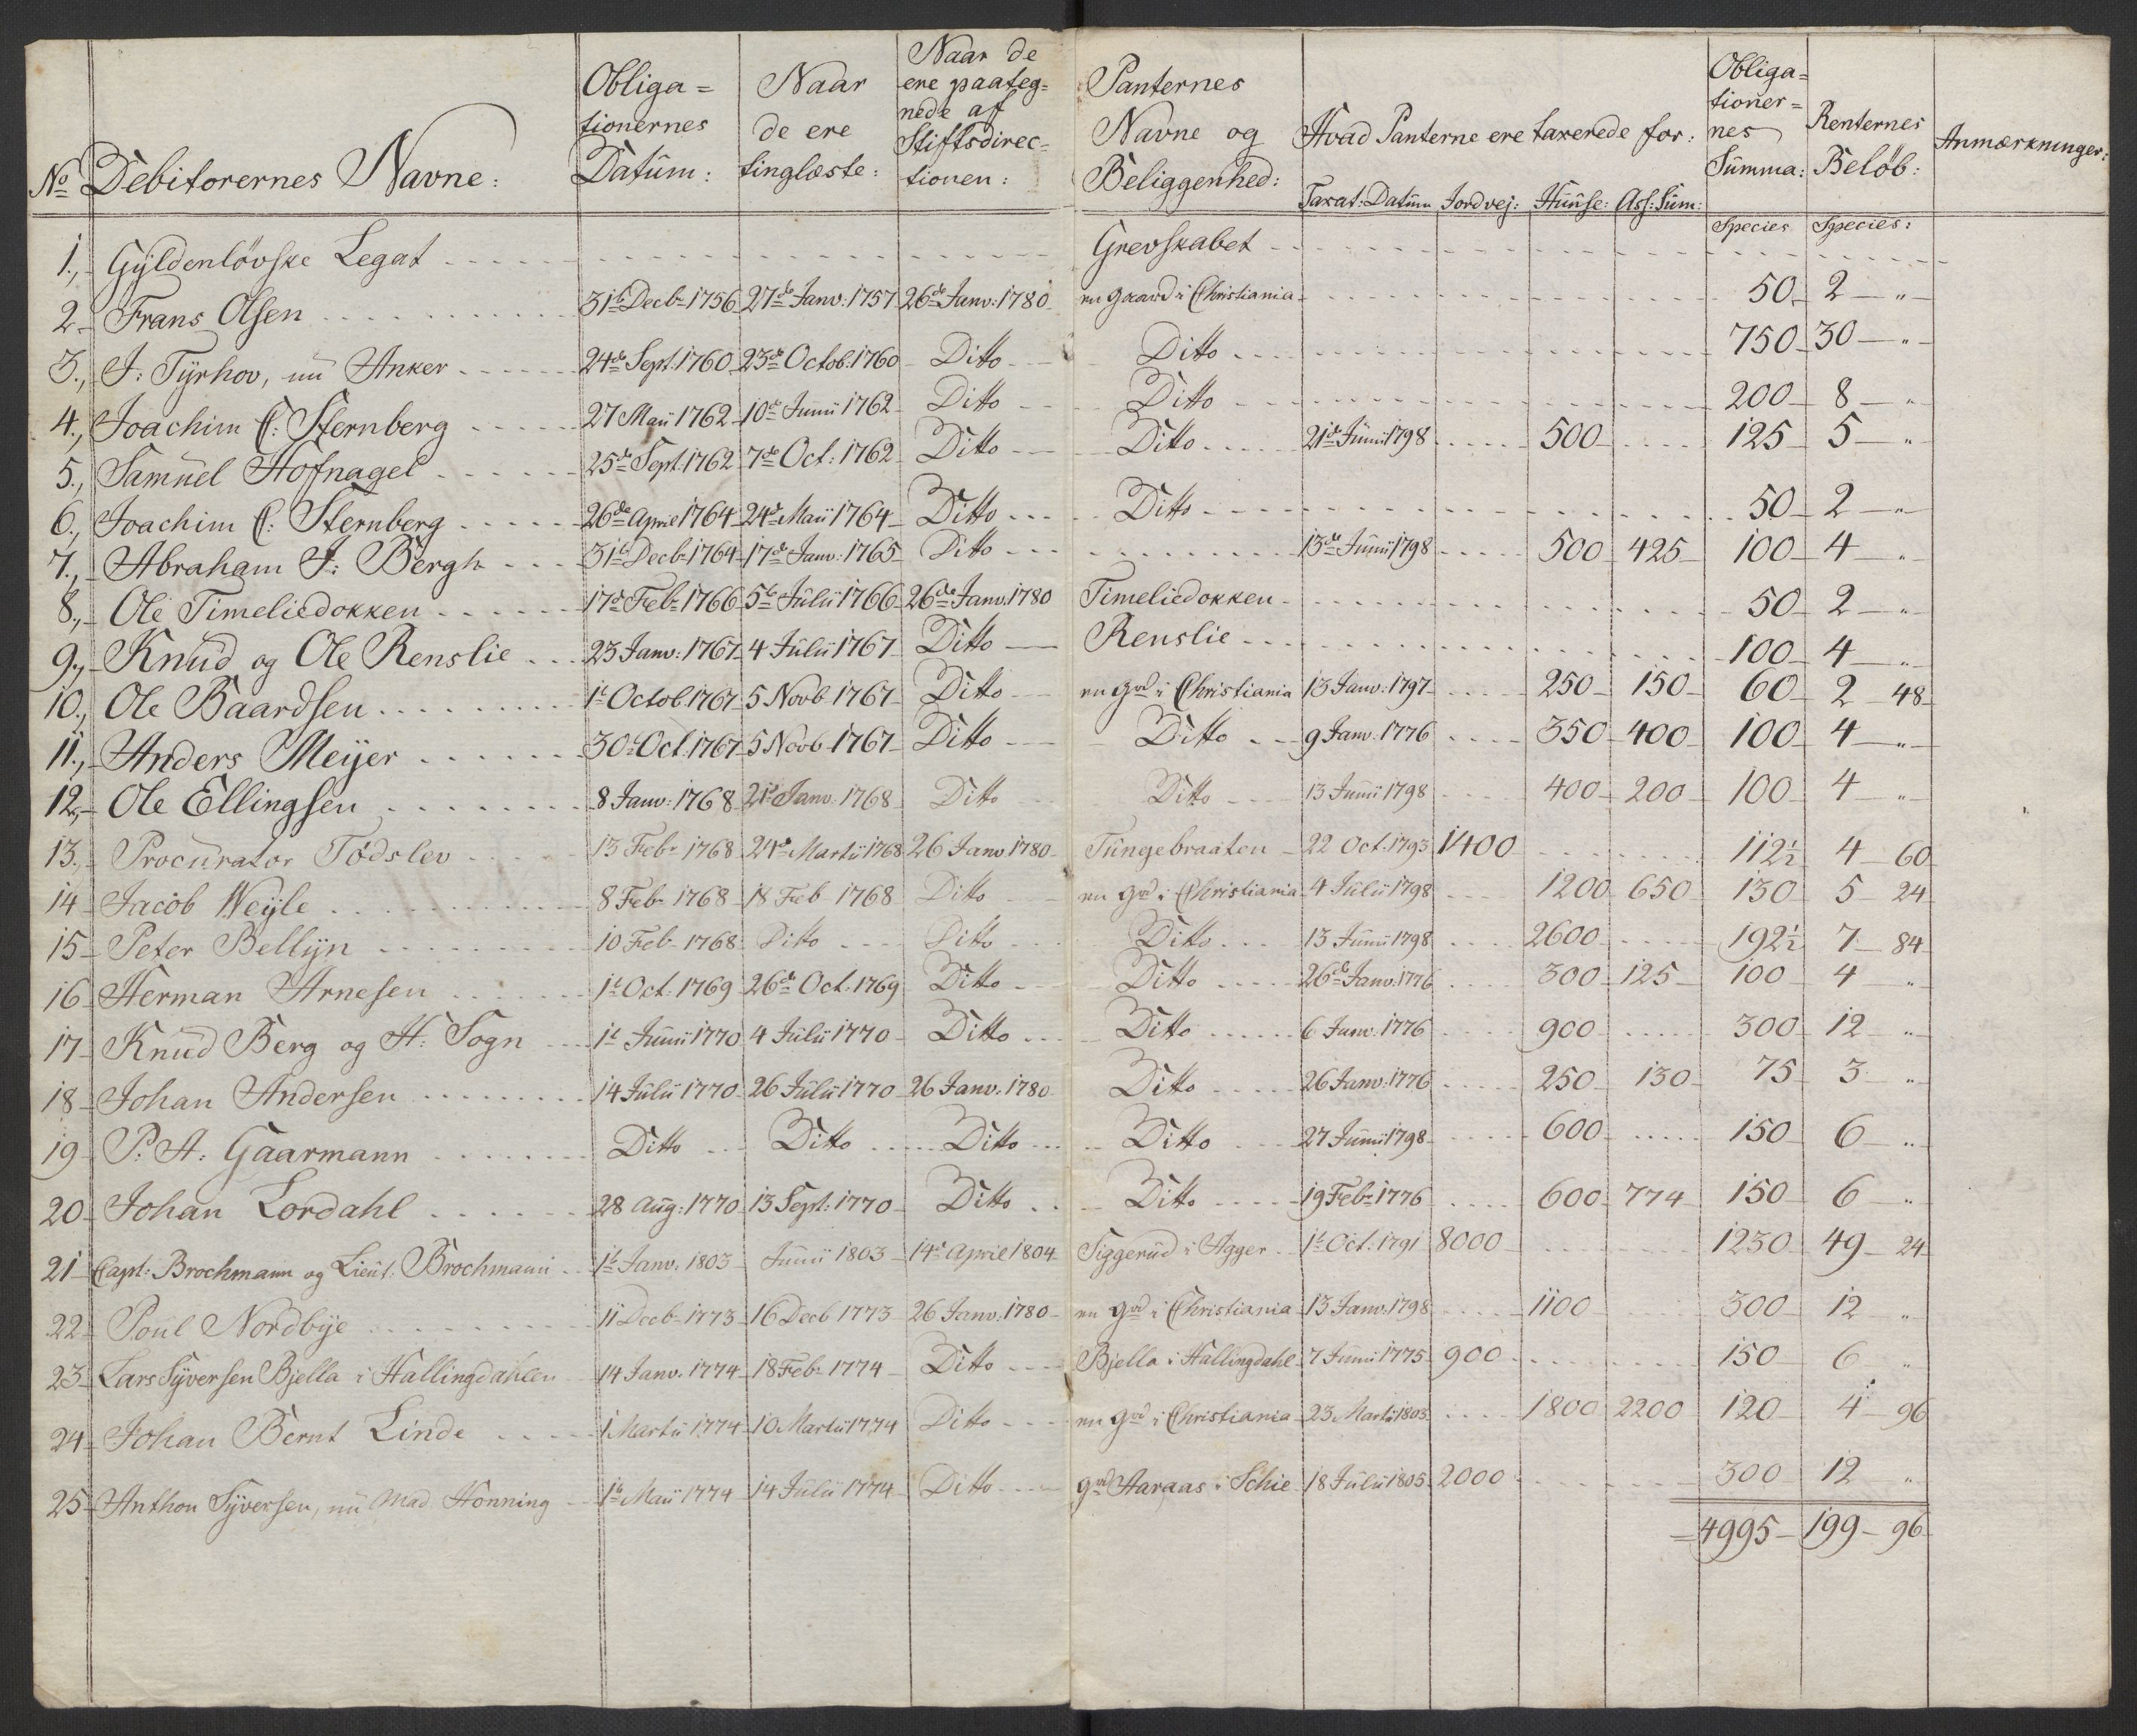 No Debitorernes Navne: Obliga= tionernes Datum: Naar de ere tinglæste: Naar de ere paateg= nede af Stiftsdirec= tionen: Panternes Navne og Beliggenhed: Hvad Panterne ere taxerede for: Obliga= tioner= nes Summa: Renternes Beløb: Anmærkninger:
Taxat: Datum Jordvej: Huuse: Ass: Sum: Species Species:
1., Gyldenløvske Legat Grevskabet
2 Frans Olsen 31te Decbr 1756 27de Janv: 1757 26de Janv: 1780 en gaard i Christiania 50 2 "
3., J: Tyrhov, nu Anker 24de Sept. 1760 23de Octob. 1760 Ditto Ditto 750 30 "
4., Joachim C: Sternberg 27 Maii 1762 10de Junii 1762 Ditto Ditto 200 8 "
5., Samuel Hofnagel 25de Sept. 1762 7de Oct: 1762 Ditto Ditto 21de Junii 1798 500 125 5 "
6., Joachim C: Sternberg 26de April 1764 24de Maii 1764 Ditto Ditto 50 2 "
7., Abraham J: Bergh 31te Decbr 1764 17de Janv: 1765 Ditto 13de Junii 1798 500 425 100 4 "
8., Ole Timeliedokken 17de Febr 1766 5te Julii 1766 26de Janv. 1780 Timeliedokken 50 2 "
9., Knud og Ole Renslie 23 Janv: 1767 4 Julii 1767 Ditto Renslie 100 4 "
10., Ole Baardsen 1t Octob. 1767 5 Novb 1767 Ditto en grd i Christiania 13 Janv: 1797 250 150 60 2 48
11., Anders Meyer 30t Oct. 1767 5 Novb 1767 Ditto Ditto 9 Janv. 1776 350 400 100 4 "
12., Ole Ellingsen 8 Janv: 1768 21de Janv. 1768 Ditto Ditto 13 Junii 1798 400 200 100 4 "
13., Procurator Tødslev 13 Febr 1768 24de Martii 1768 26 Janv. 1780 Tungebraaten 22 Oct. 1793 1400 112½ 4 60
14 Jacob Weyle 8 Febr 1768 18 Feb 1768 Ditto en grd i Christiania 4 Julii 1798 1200 650 130 5 24
15 Peter Bellyn 10 Feb 1768 Ditto Ditto Ditto 13 Junii 1798 2600 192½ 7 84
16 Herman Arnesen 1t Oct. 1769 26de Oct. 1769 Ditto Ditto 26de Janv. 1776 300 125 100 4 "
17 Knud Berg og H: Sogn 1t Junii 1770 4 Julii 1770 Ditto Ditto 6 Janv. 1776 900 300 12 "
18 Johan Andersen 14 Julii 1770 26 Julii 1770 26 Janv. 1780 Ditto 26 Janv. 1776 250 130 75 3 "
19 P. A: Gaarmann Ditto Ditto Ditto Ditto 27 Junii 1798 600 150 6 "
20 Johan Lordahl 28 Aug: 1770 13 Sept: 1770 Ditto Ditto 19 Febr 1776 600 774 150 6 "
21 Capt: Brochmann og Lieut: Brochmann 1t Janv. 1803 Junii 1803 14de April 1804 Siggerud i Agger 1t Oct. 1791 8000 1230 49 24
22 Poul Nordbye 11 Decbr 1773 16 Decb 1773 26 Janv. 1780 en grd i Christiania 13 Janv. 1798 1100 300 12 "
23 Lars Syversen Bjella i Hallingdahlen 14 Janv. 1774 18 Febr 1774 Ditto Bjella i Hallingdahl 7 Junii 1775 900 150 6 "
24 Johan Bernt Linde 1 Martii 1774 10 Martii 1774 Ditto en grd i Christiania 23 Martii 1803 1800 2200 120 4 96
25 Anthon Syversen, nu Mad Honning 1te Maii 1774 14 Julii 1774 Ditto grd Haraas i Schie 18 Julii 1805 2000 300 12 "
4995 199 96